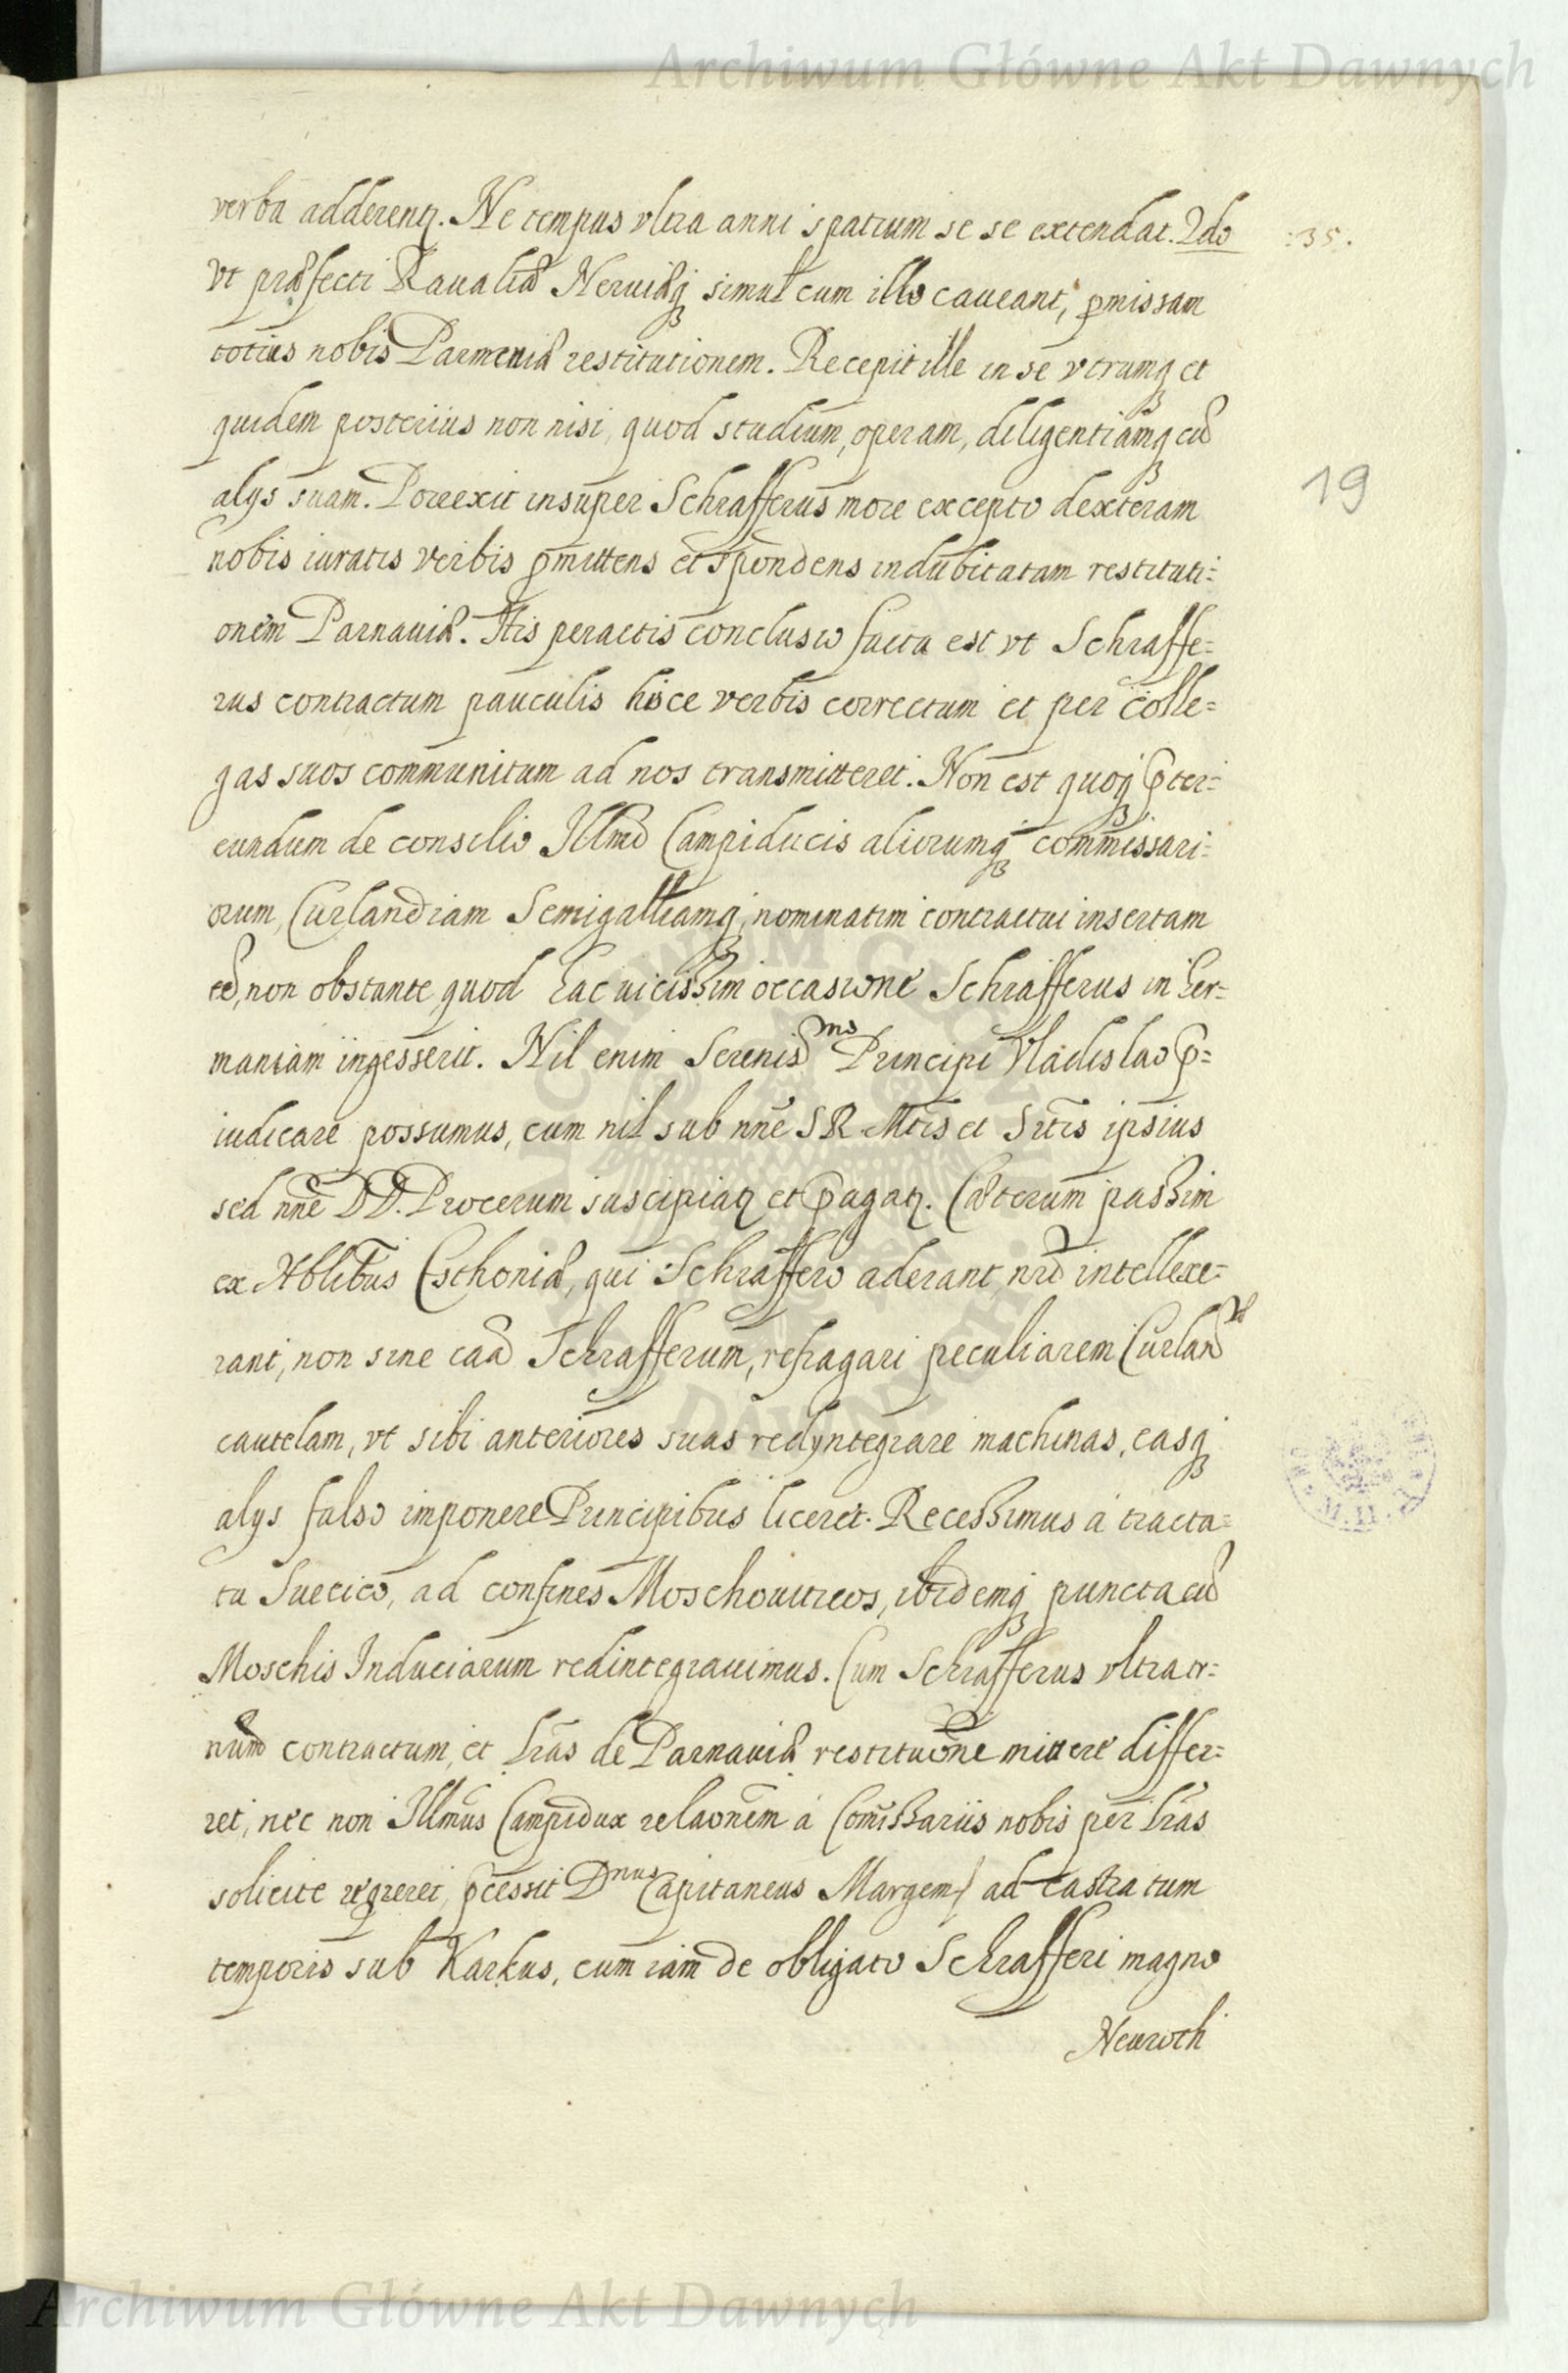 Archiwum Główne Akt Dawnych
verba adderentꝗ. Ne tempus vltra anni spatium se se extendat. 2do
:35.
vt præfecti Raualiæ Neruiæqꝫ simul cum illo caueant, ꝓmissam
totius nobis Parmeniæ restitutionem. Recepit ille in se vtrumqꝫ et
quidem posterius non nisi, quod studium, operam, diligentiamqꝫ cū
19
alys suam. Porrexit insuper Schrafferus more excepto dexteram
nobis iuratis verbis ꝓmittens et spondens indubitatam restituti=
onem Parnauiæ. His peractis conclusio facta est vt Schraffe=
rus contractum pauculis hisce verbis correctum et per colle=
gas suos communitum ad nos transmitteret. Non est quoqꝫ p̄ter=
eundum de consilio Illmi Campiducis aliorumqꝫ commissari=
orum, Curlandiam Semigalliamqꝫ, nominatim contractui insertam
eē, non obstante quod hac uicissim occasione Schrafferus in Ger=
maniam ingesserit. Nil enim Serenismo Principi Vladislao p̄=
iudicare possumus, cum nil sub nn̄e S R Mtis et Srtis ipsius
sed nn̄e DD. Procerum suscipiatꝗ et p̄agatꝗ. Cæterum passim
ex Nblibus Esthoniæ, qui Schraffero aderant, nr̄i intellexe=
rant, non sine caā Schrafferum, refragari peculiarem Curland
cautelam, vt sibi anteriores suas redyntegrare machinas, easqꝫ
alys falso imponere Principibus liceret. Recessimus á tracta=
tu Suecico, ad confines Moschouiticos, ibidemqꝫ puncta cū
Moschis Induciarum redintegrauimus. Cum Schrafferus vltra tr=
num contractum, et lr̄as de Parnauiæ restituōne mittere differ=
ret, nec non Illmus Campidux relaōnem á Comissariis nobis per lr̄as
solicite reqreret, p̄cessit Dnus Capitaneus Margem) ad castra tum
temporis sub Karkus, cum iam de obligato Schrafferi magno
Neuroth
Archiwum Główne Akt Dawnych